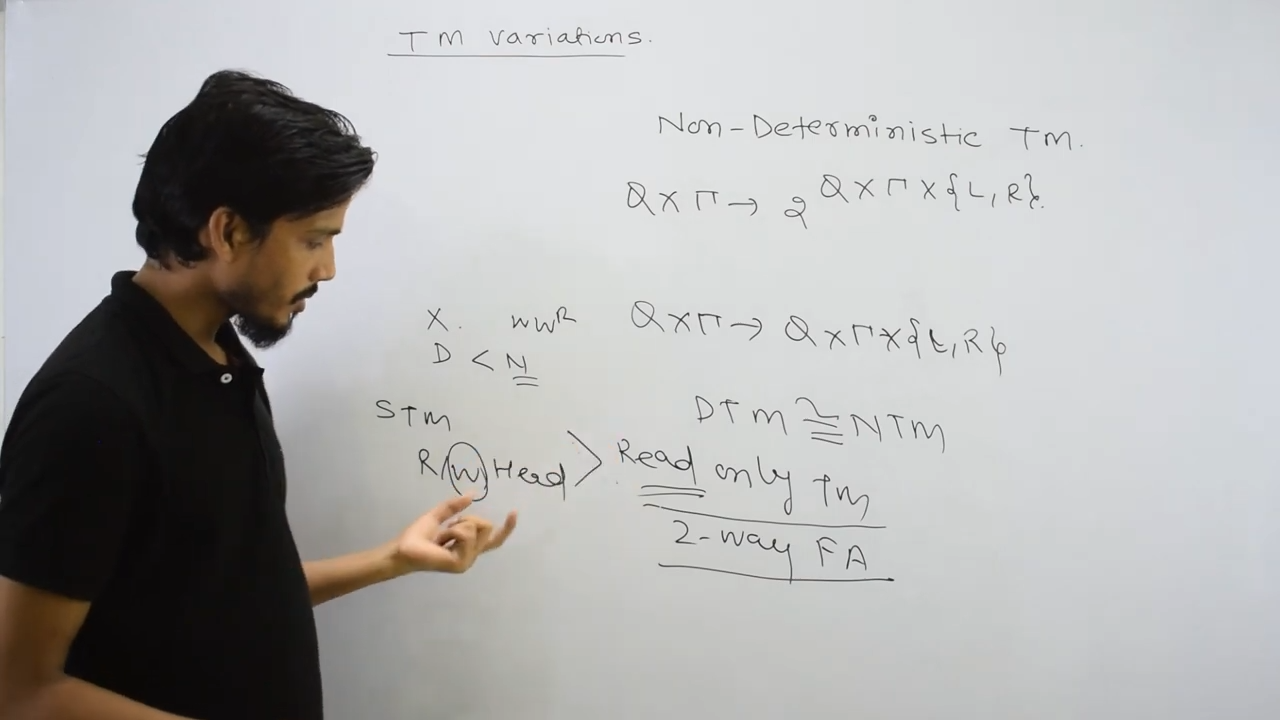 TM Variations.
Non-Deterministic TM.
Q X Γ → 2^{Q X Γ X {L, R}}.
X. ww^R Q X Γ → Q X Γ X {L, R}
D < N
STM DTM ≅ NTM
R/W Head > Read only TM
2-way FA